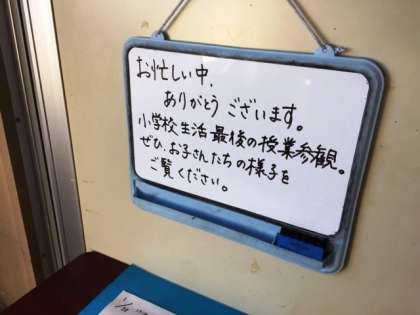 お忙しい中、
ありがとうございます。
小学校生活最後の授業参観。
ぜひ、お子さんたちの様子を
ご覧ください。